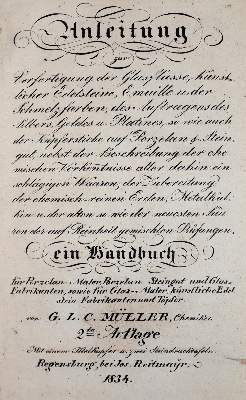 Anleitung
zur
Verfertigung der Glasflüsse, künst-
licher Edelsteine, Emaille u. der
Schmelzfarben, des Auftragens des
Silbers, Goldes u. Platines, so wie auch
der Kupferstiche auf Porzelan & Stein
gut, nebst der Beschreibung der che
mischen Vorkentnisse aller dahin ein-
schlägigen Waaren, der Zubereitung
der chemisch-reinen Erden, Metalkal-
ken u. der alten so wie der neuesten Säu
ren der auf Reinheit gemischten Prüfungen,
ein Handbuch
für Porzelan-Maler, Porzelan Steingut und Glas-
Fabrikanten, sowie für Glas-Maler, künstliche Edel
stein Fabrikanten und Töpfer
von G. L. C. MÜLLER, Chemiker.
2te Auflage
Mit einem Titelkupfer u. zwei Steindrucktafeln.
Regensburg, bei Jos. Reitmayr
1834.